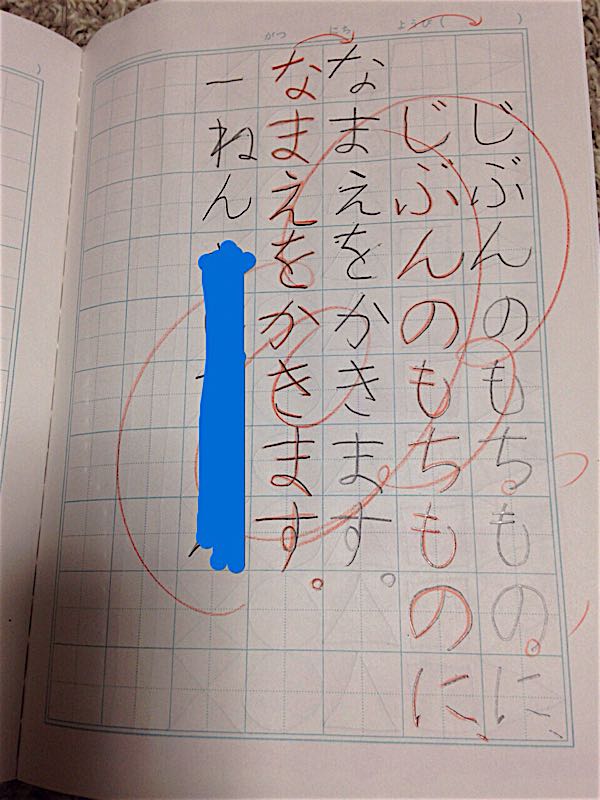 がつ にち ようび( )
じぶんのもちものに、
じぶんのもちものに、
なまえをかきます。
なまえをかきます。
一ねん